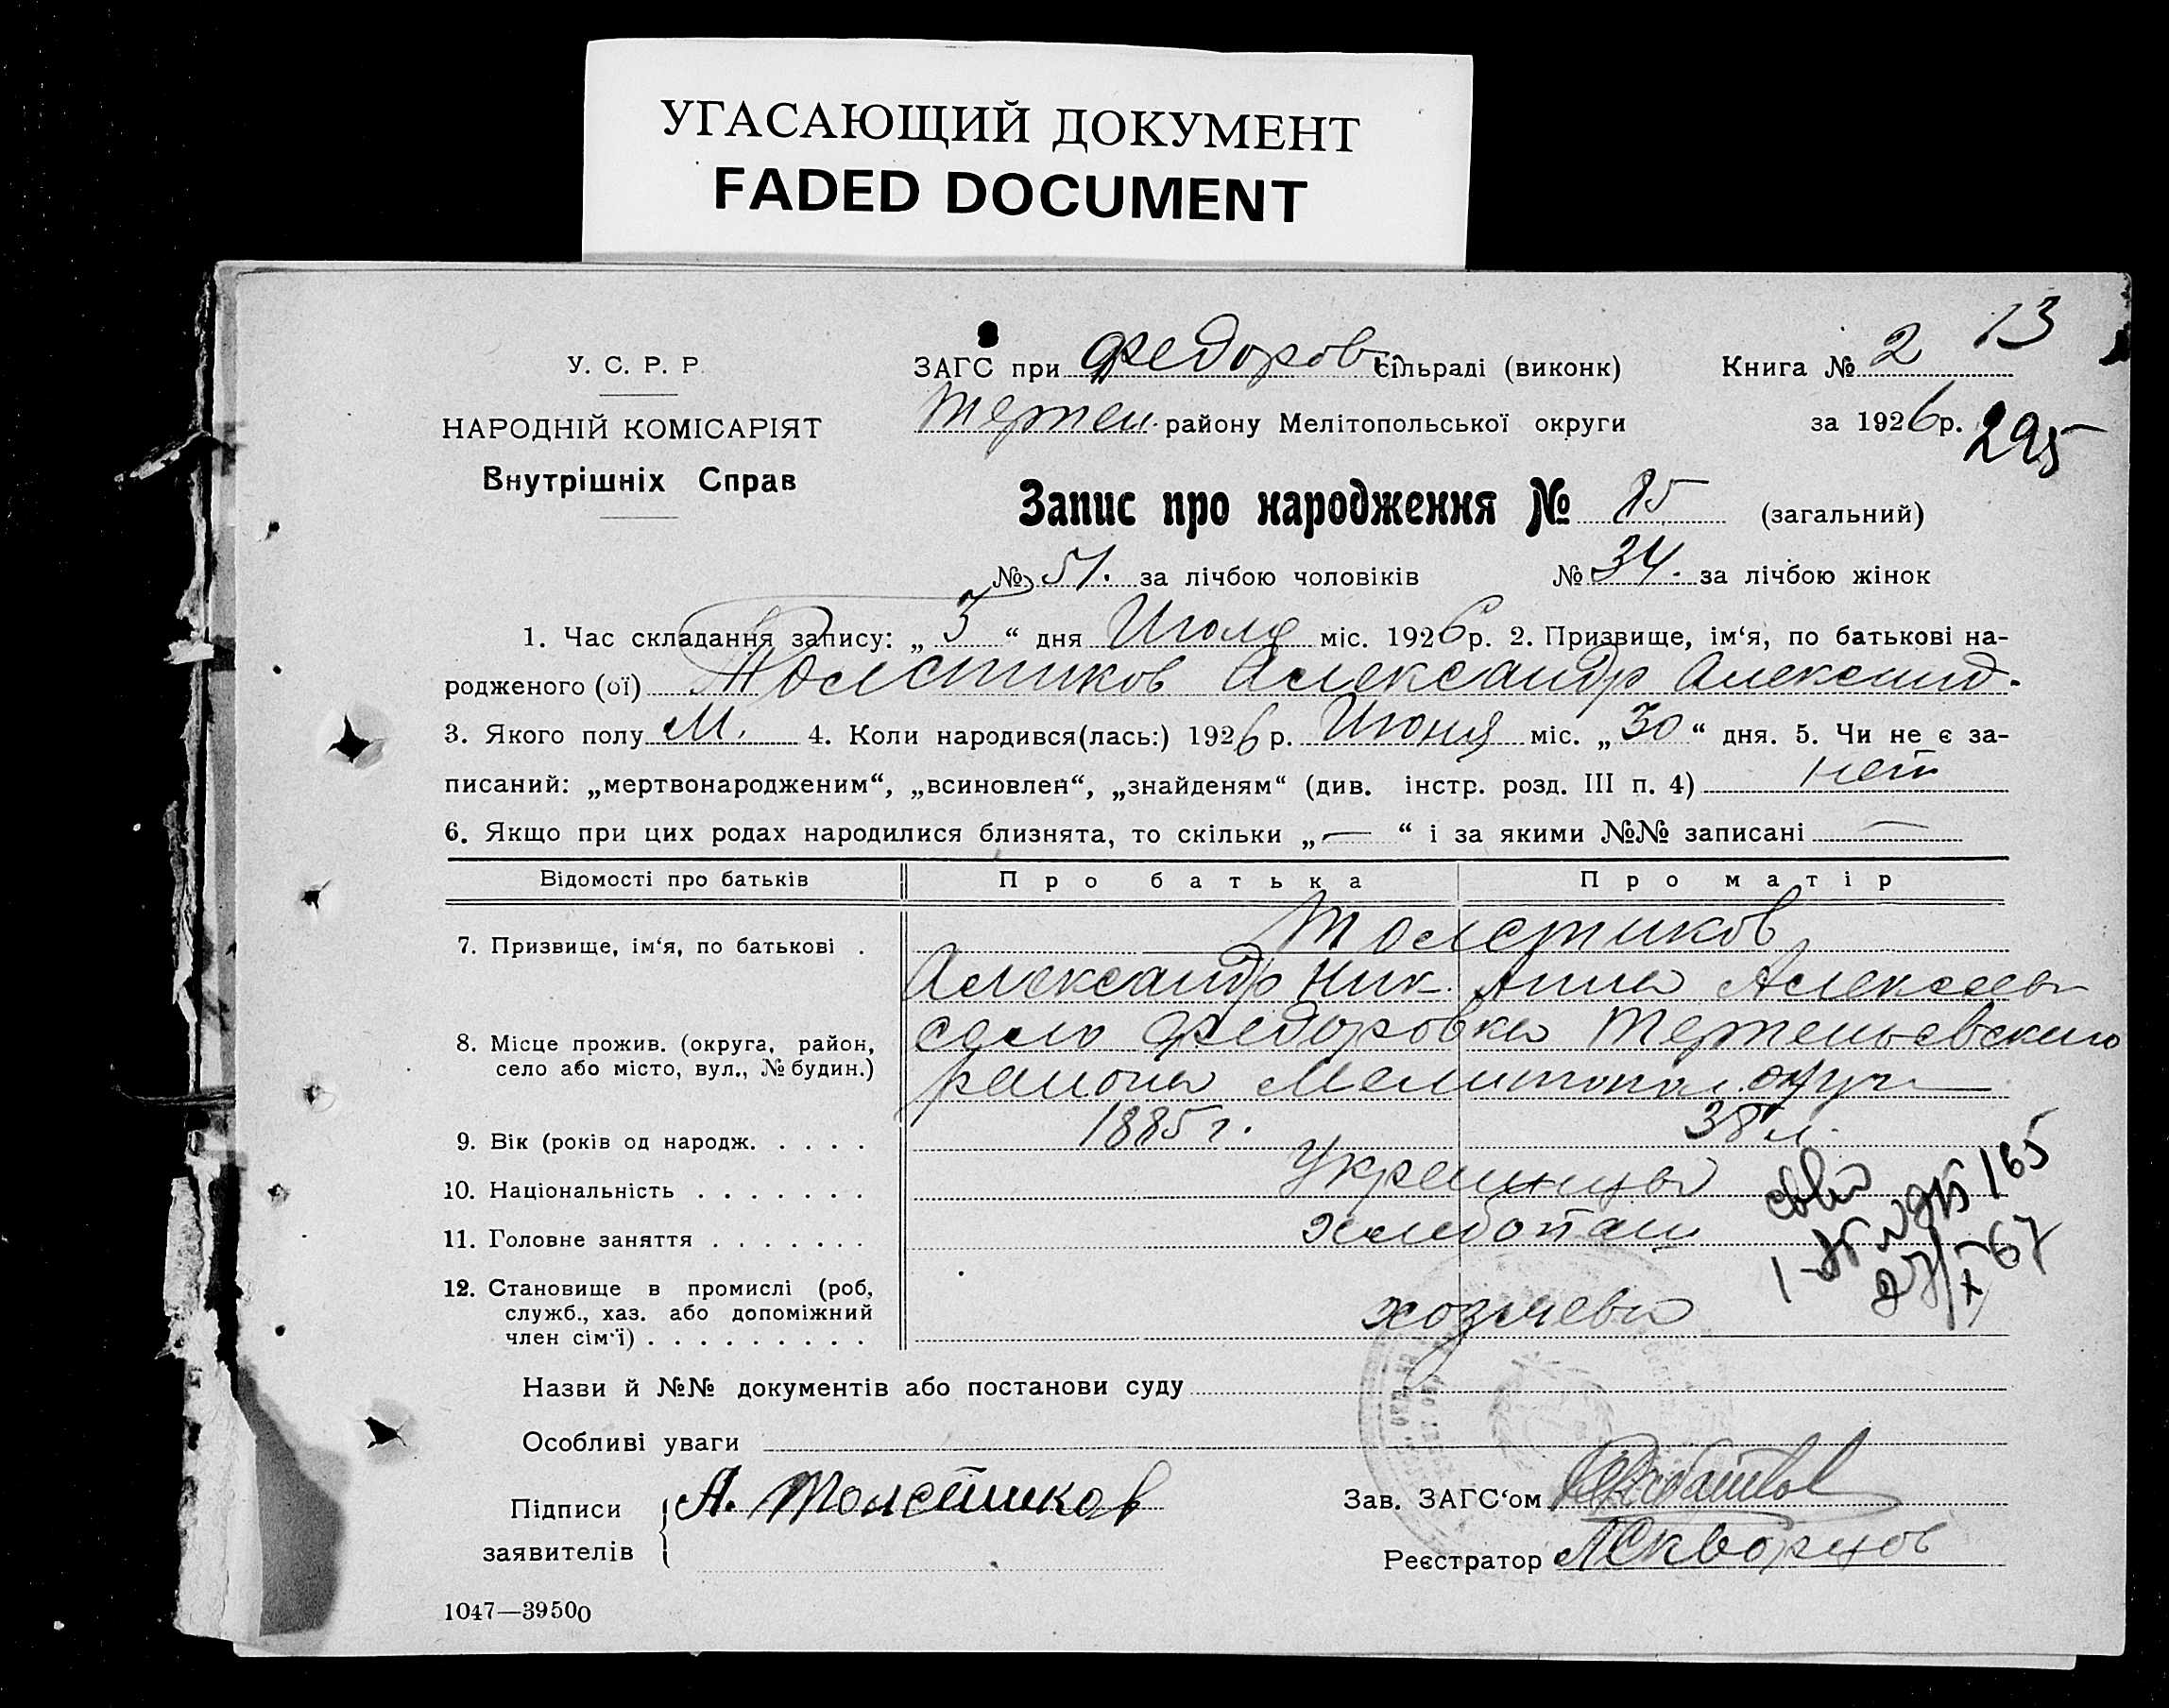 УГАСАЮЩИЙ ДОКУМЕНТ
FADED DOCUMENT
13
У. С. Р. Р
НАРОДНІЙ КОМІСАРІЯТ
Внутрішніх Справ
ЗАГС при Федоров сільраді (виконк)
Книга № 2
Терпен. району Мелітопольської округи
за 1926 р.
295
Запис про народження № 85 (загальний)
№ 51. за лічбою чоловіків № 34. за лічбою жінок
1. Час складання запису: „ 3 “ дня Июля міс. 1926 р. 2. Призвище, ім‘я, по батькові на-
родженого (ої) Толстиков Александр Александ.
3. Якого полу М. 4. Коли народився(лась:) 1926 р. Июня міс. „ 30 “ дня. 5. Чи не є за-
писаний: „мертвонародженим“, „всиновлен“, „знайденям“ (див. інстр. розд. III п. 4) нет
6. Якщо при цих родах народилися близнята, то скільки „ — “ і за якими №№ записані —
Відомості про батьків Про батька Про матір
7. Призвище, ім‘я, по батькові . Толстиков
Александр Ник. Анна Алексеев
8. Місце прожив. (округа, район, село або місто, вул., № будин.)
село Федоровка Терпеньевского
района Мелитопол. округ
9. Вік (років од народж. . . . . 1885 г. 38 л.
10. Національність . . . . . . . Украинцы
11. Головне заняття . . . . . . . хлебопаш
12. Становище в промислі (роб,
служб., хаз. або допоміжний
член сім‘ї) . . . . . . . . . хозяева
165
67
Назви й №№ документів або постанови суду
Особливі уваги
Підписи заявителів А. Толстиков
Зав. ЗАГС‘ом
Реєстратор Л Скворцов
1047—39500